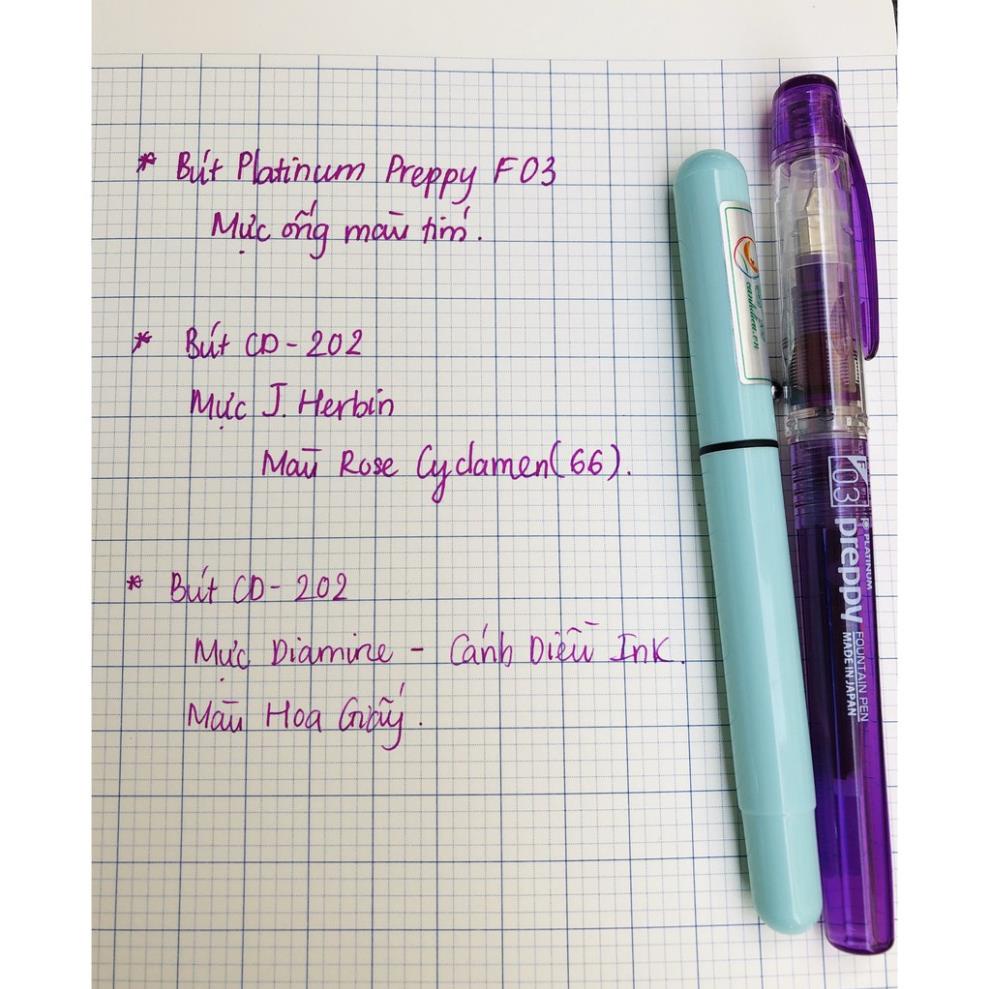 * Bút Platinum Preppy F 03
Mực ống màu tím.
* Bút CD - 202
Mực J. Herbin
Màu Rose Cyclamen (66).
* Bút CD - 202
Mực Diamine - Cánh Diều Ink.
Màu Hoa Giấy.
F
03
PLATINUM
preppy
FOUNTAIN PEN
MADE IN JAPAN